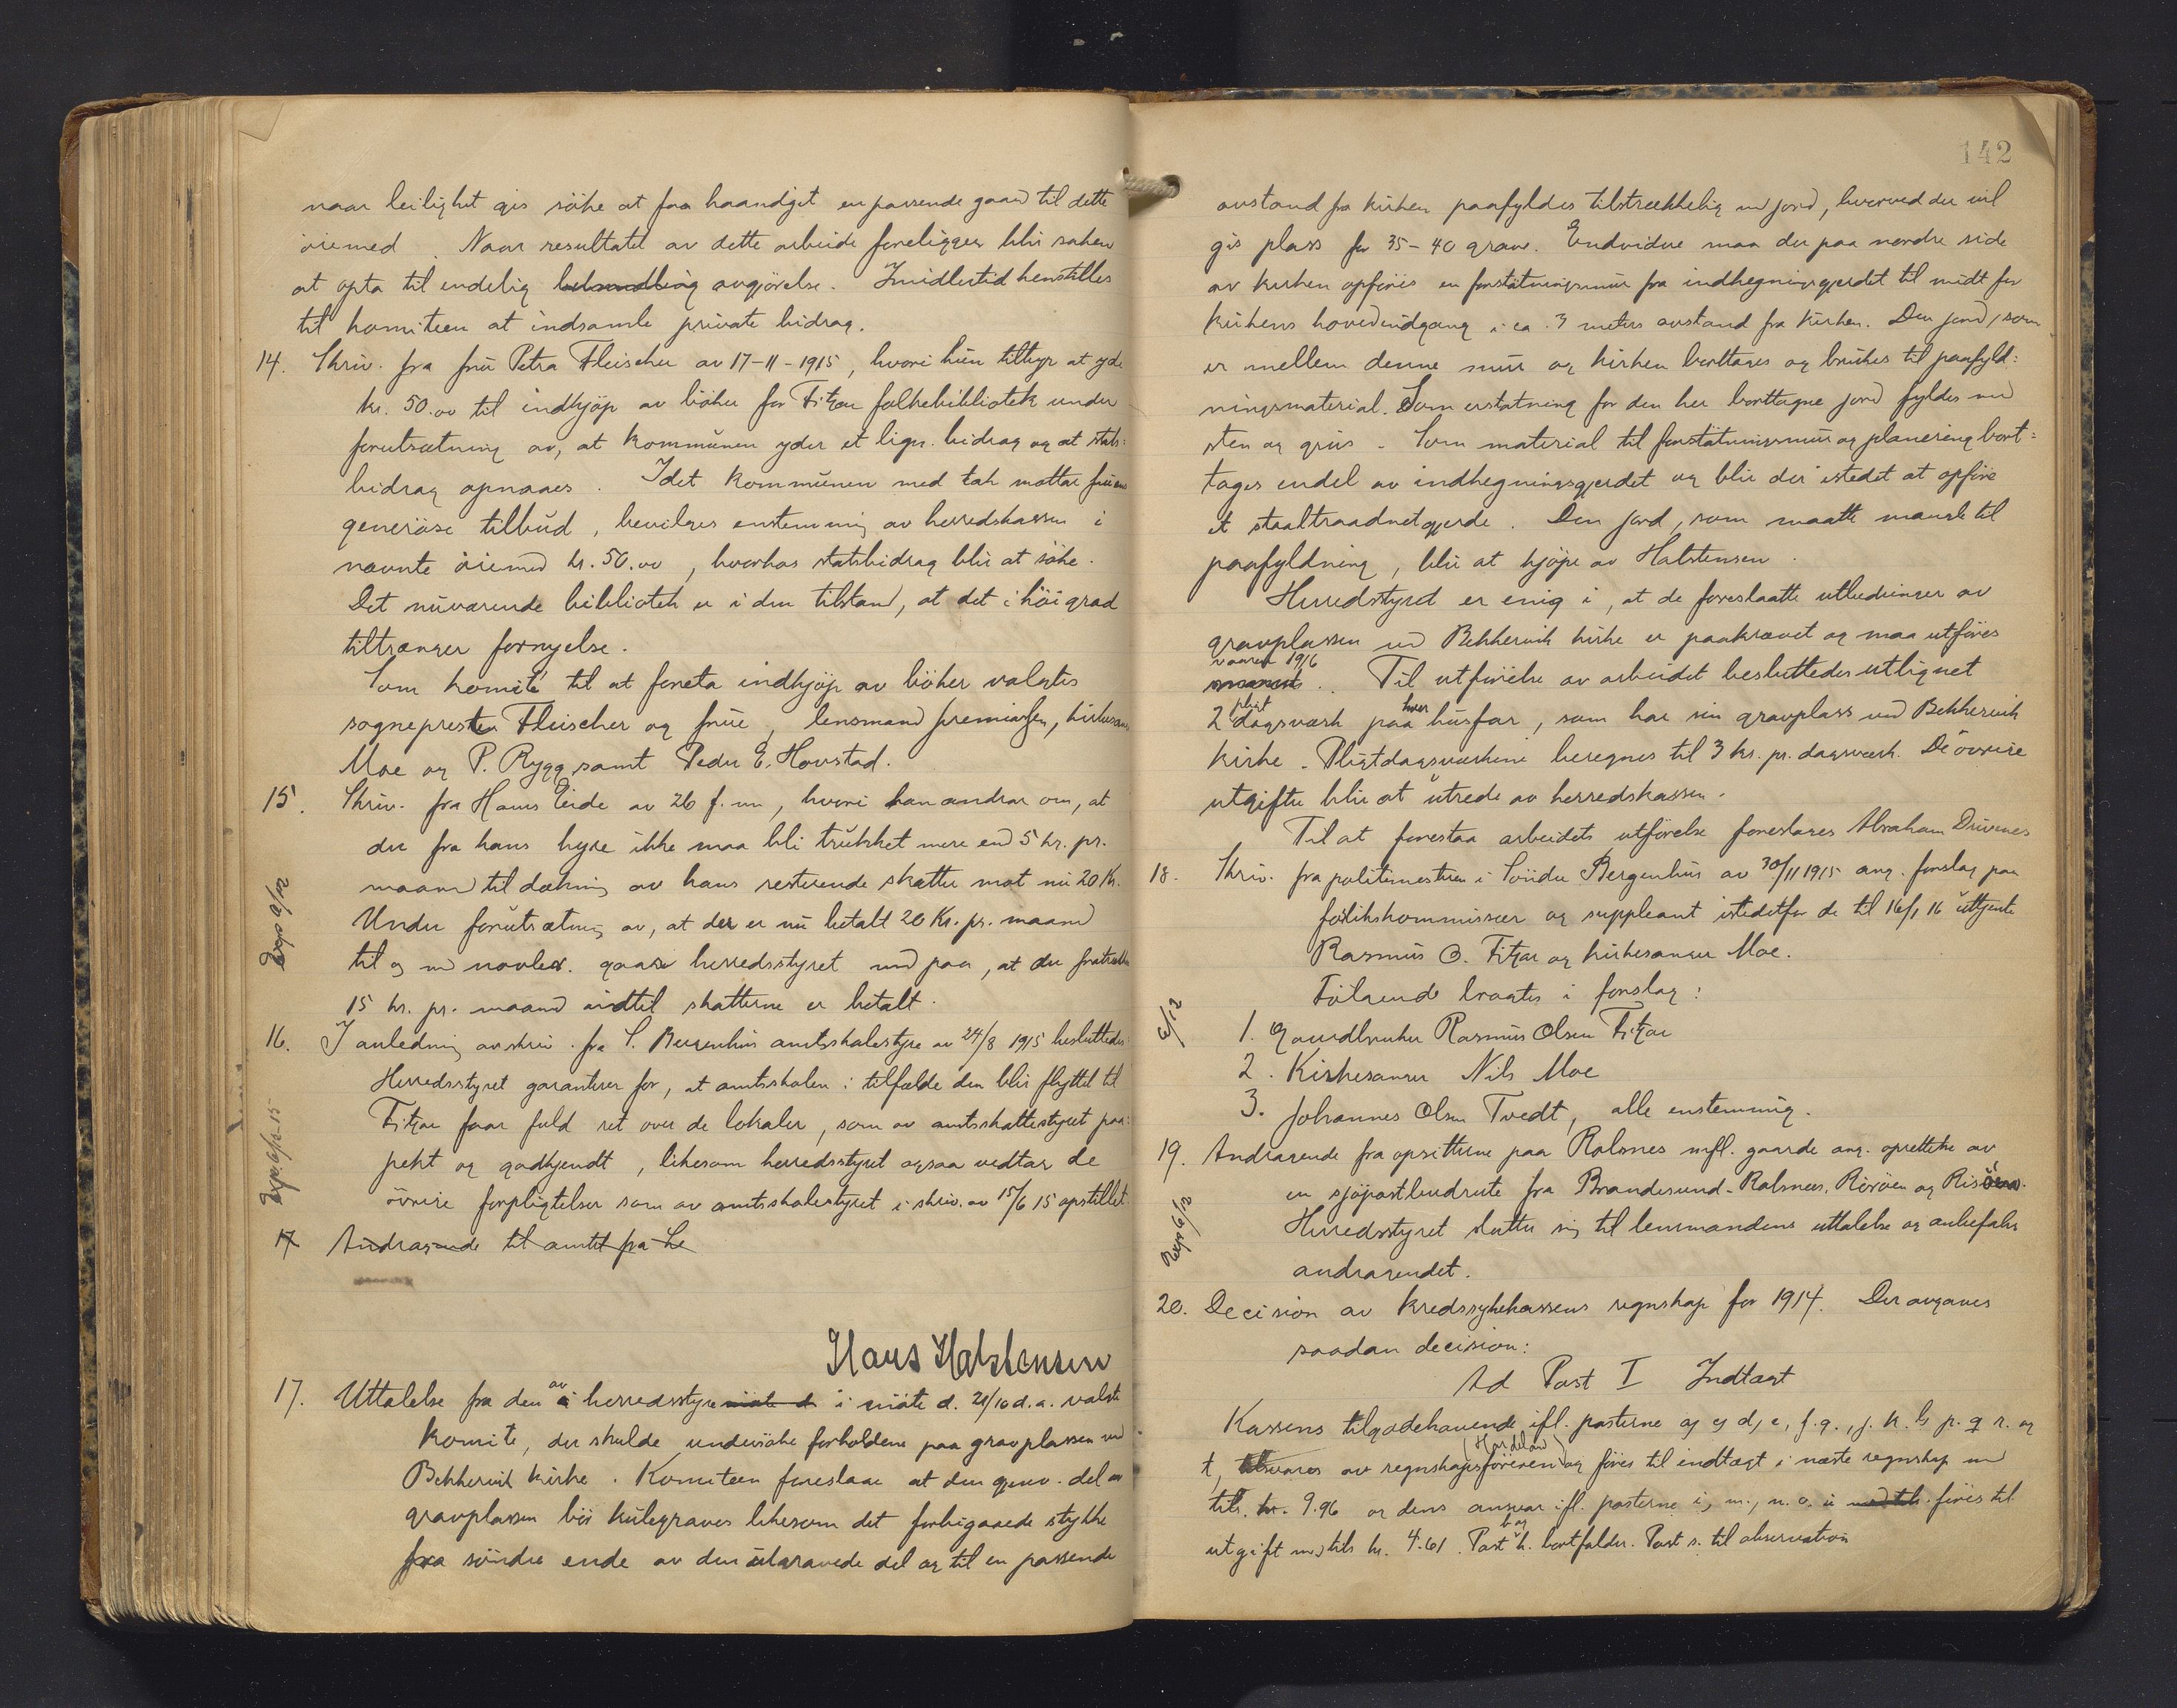 naar leilighet gis söke at faa haandgit en passende gaard til dette
öiemed. Naar resultatet av dette arbeide foreligger blir saken
at opta til endelig behandling avgjörelse. Imidlertid henstilles
til komiteen at indsamle private bidrag.
14. Skriv. fra frue Petra Fleischer av 17-11-1915, hvori hun tilbyr at yde
kr. 50.00 til indkjöp av böker for Fitjar folkebibliotek under
forutsætning av, at kommunen yder et lign. bidrag og at stats=
bidrag opnaaes. Idet kommunen med tak mottar fruens
generöse tilbud, bevilges enstemmig av herredskassen i
nævnte öiemed kr. 50.00, hvorhos statsbidrag blir at söke.
Det nuværende bibliotek er i den tilstand, at det i höi grad
tiltrænger fornyelse.
Som komité til at foreta indkjöp av böker valgtes
sogneprest Fleischer og frue, lensmand Jremiassen, kirkesanger
Moe og P. Rygg samt Peder E. Hovstad.
15. Skriv. fra Hans Eide av 26 f. m, hvori han andrar om, at
der fra hans hyre ikke maa bli trukket mere end 5 kr. pr.
maaned til dækning av hans resterende skatter mot nu 20 Kr.
Under forutsætning av, at der er nu betalt 20 Kr. pr. maaned
til og med novbr. gaar herredsstyret med paa, at der fratrækkes
15 kr. pr. maaned indtil skatterne er betalt.
Exp 9/12
16. I anledning av skriv. fra S. Bergenhus amtsskolestyre av 24/8 1915 besluttedes:
Herredsstyret garanterer for, at amtsskolen i tilfælde den blir flyttet til
Fitjar faar fuld ret over de lokaler, som av amtsskattestyret paa=
pekt og godkjendt, likesom herredsstyret ogsaa vedtar de
övrige forpligtelser som av amtsskolestyret i skriv. av 15/6 15 opstillet.
Expr. 6/12-15
17 Andragende til amtet fra Le
Hans Halstensen
17. Uttalelse fra den av i herredsstyremöte d. i möte d. 21/10 d. a. valgte
komite, der skulde undersöke forholdene paa gravplassen ved
Bekkervik kirke. Komiteen foreslaar at den gjenv. del av
gravplassen bör kulegraves likesom det forbigaaede stykke
fra söndre ende av den utgravede del og til en passende
142
avstand fra kirken paafyldes tilstrækkelig med jord, hvorved der vil
gis plass for 35-40 grave. Endvidere maa der paa nordre side
av kirken opföres en forstötningsmur fra indhegningsgjerdet til midt for
kirkens hovedindgang i ca. 3 meters avstand fra kirken. Den jord, som
er mellem denne mur og kirken borttages og brukes til paafyld=
ningsmaterial. Som erstatning for den her borttagne jord fyldes med
sten og grus. Som material til forstötningsmur og planering bort=
tages endel av indhegningsgjerdet og blir der istedet at opföre
et staaltraadnetgjerde. Den jord, som maatte mangle til
paafyldning, blir at kjöpe av Halstensen.
Herredsstyret er enig i, at de foreslaatte utbedringer av
gravplassen ved Bekkervik kirke er paakrævet og maa utföres
vaaren 1916
Til utförelse av arbeidet besluttedes utlignet
2 pligtdagsværk paa hver husfar, som har sin gravplass ved Bekkervik
kirke. Pligtdagsværkene beregnes til 3 kr. pr. dagsværk. De övrige
utgifter blir at utrede av herredskassen.
Til at forestaa arbeidets utförelse foreslaaes Abraham Drivenes
18. Skriv. fra politimesteren i Söndre Bergenhus av 30/11 1915 ang. forslag paa
forlikskommissær og suppleant istedetfor de til 16/1 16 uttjente
Rasmus O. Fitjar og kirkesanger Moe.
Fölgende bragtes i forslag:
6/12
1. Gaardbruker Rasmus Olsen Fitjar
2. Kirkesanger Nils Moe
3. Johannes Olsen Tvedt, alle enstemmig.
19. Andragende fra opsitterne paa Rolsnes mfl. gaarde ang. oprettelse av
en sjöpostbudrute fra Brandesund-Rolsnes, Röröen og Risöen.
Herredsstyret slutter sig til lensmandens uttalelse og anbefaler
andragendet.
Exp 6/12
20. Decision av kredssykekassens regnskap for 1914. Der avgaves
saadan decision:
Ad Post I Indtægt
Kassens tilgodehavende ifl. posterne a, c, d, e, f. g., j. k. l. p. q r. og
t, tilsvares av regnskapsföreren (Hardeland) og föres til indtægt i næste regnskap med
tils. kr. 9.96 og dens ansvar ifl. posterne i, m., n. o. u med tils. föres til
utgift med tils kr. 4.61. Post b og h. bortfalder. Post s. til observation